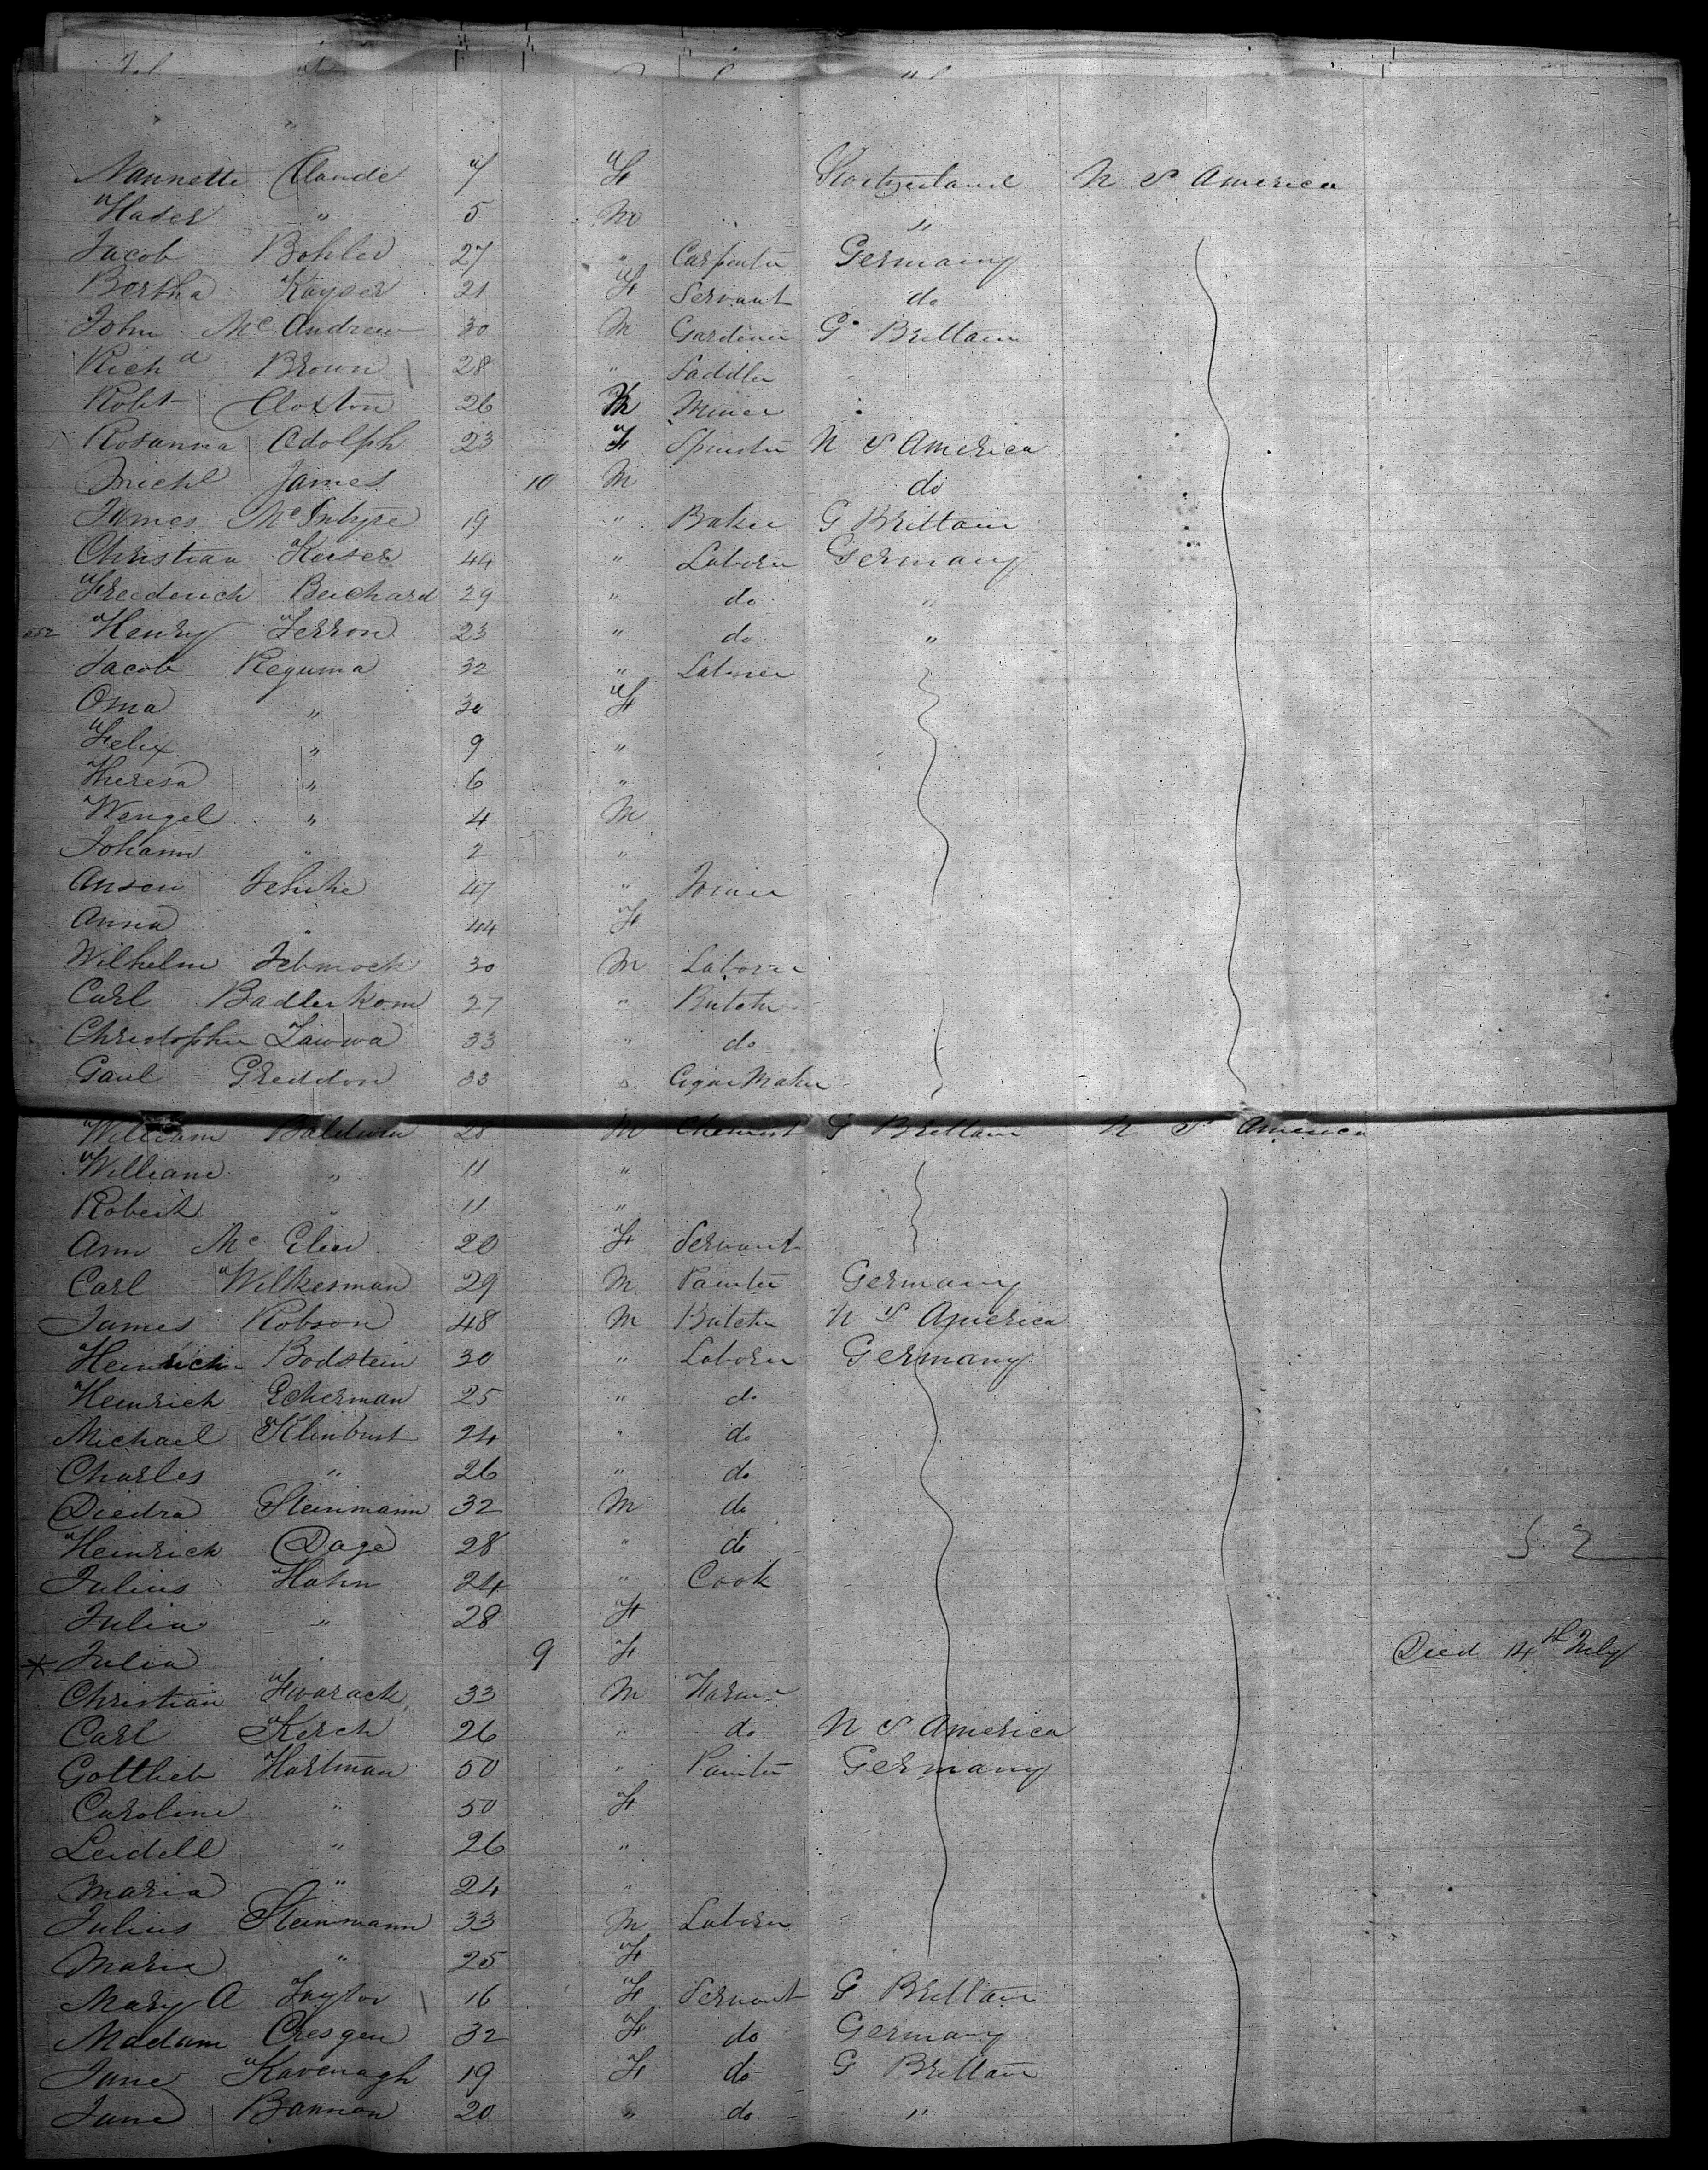 Nannette Claude 7 F Switzerland N S America
Haser " 5 M "
Jacob Bohler 27 " Carpenter Germany
Bertha Kayser 21 F Servant do
John Mc Andrew 30 M Gardiner G Brittain
Richd Brown 28 " Saddler
Robt Cloxton 26 M Miner
Rosanna Adolph 23 F Spinster N S America
Michl James 10 M do
James McIntyre 19 " Baker G Brittain
Christian Keiser 44 " Laborer Germany
Frederich Beichard 29 " do "
Henry Ferron 23 " do "
Jacob Reguma 32 " Laborer
Oma " 30 F
Felix " 9 "
Theresa " 6 "
Wengel " 4 M
Johann " 2 "
Ansen 47 " Joiner
Anna " 44 F
Wilhelm 30 M Laborer
Carl Badlerkom 27 " Butcher
Christopher Lawwa 33 " do
Gaul Greddon 33 " Cigar Maker
William Baldwin 28 M Chemist G Brittain N S America
William " 11 "
Robert " 11 "
Ann Mc 20 F Servant
Carl Wilkesman 29 M Painter Germany
James Robson 48 M Butcher N S America
Heinrich Bodstein 30 " Laborer Germany
Heinrich Eckerman 25 " do
Michael Klinbust 24 " do
Charles " 26 " do
Diedra Steinmann 32 M do
Heinrich Dage 28 " do
Julius Hahn 24 " Cook
Julia " 28 F
* Julia " 9 F Died 14th July
Christian 33 M Farmer
Carl Kerch 26 " do N S America
Gottlieb Hartman 50 " Painter Germany
Caroline " 50 F
Leidell " 26 "
Maria " 24 "
Julius Steinmann 33 M Laborer
Maria " 25 F
Mary A Taylor 16 F Servant G Brittain
Madam Cresgen 32 F do Germany
Jane Kavenagh 19 F do G Brittain
Jane Bannon 20 " do "